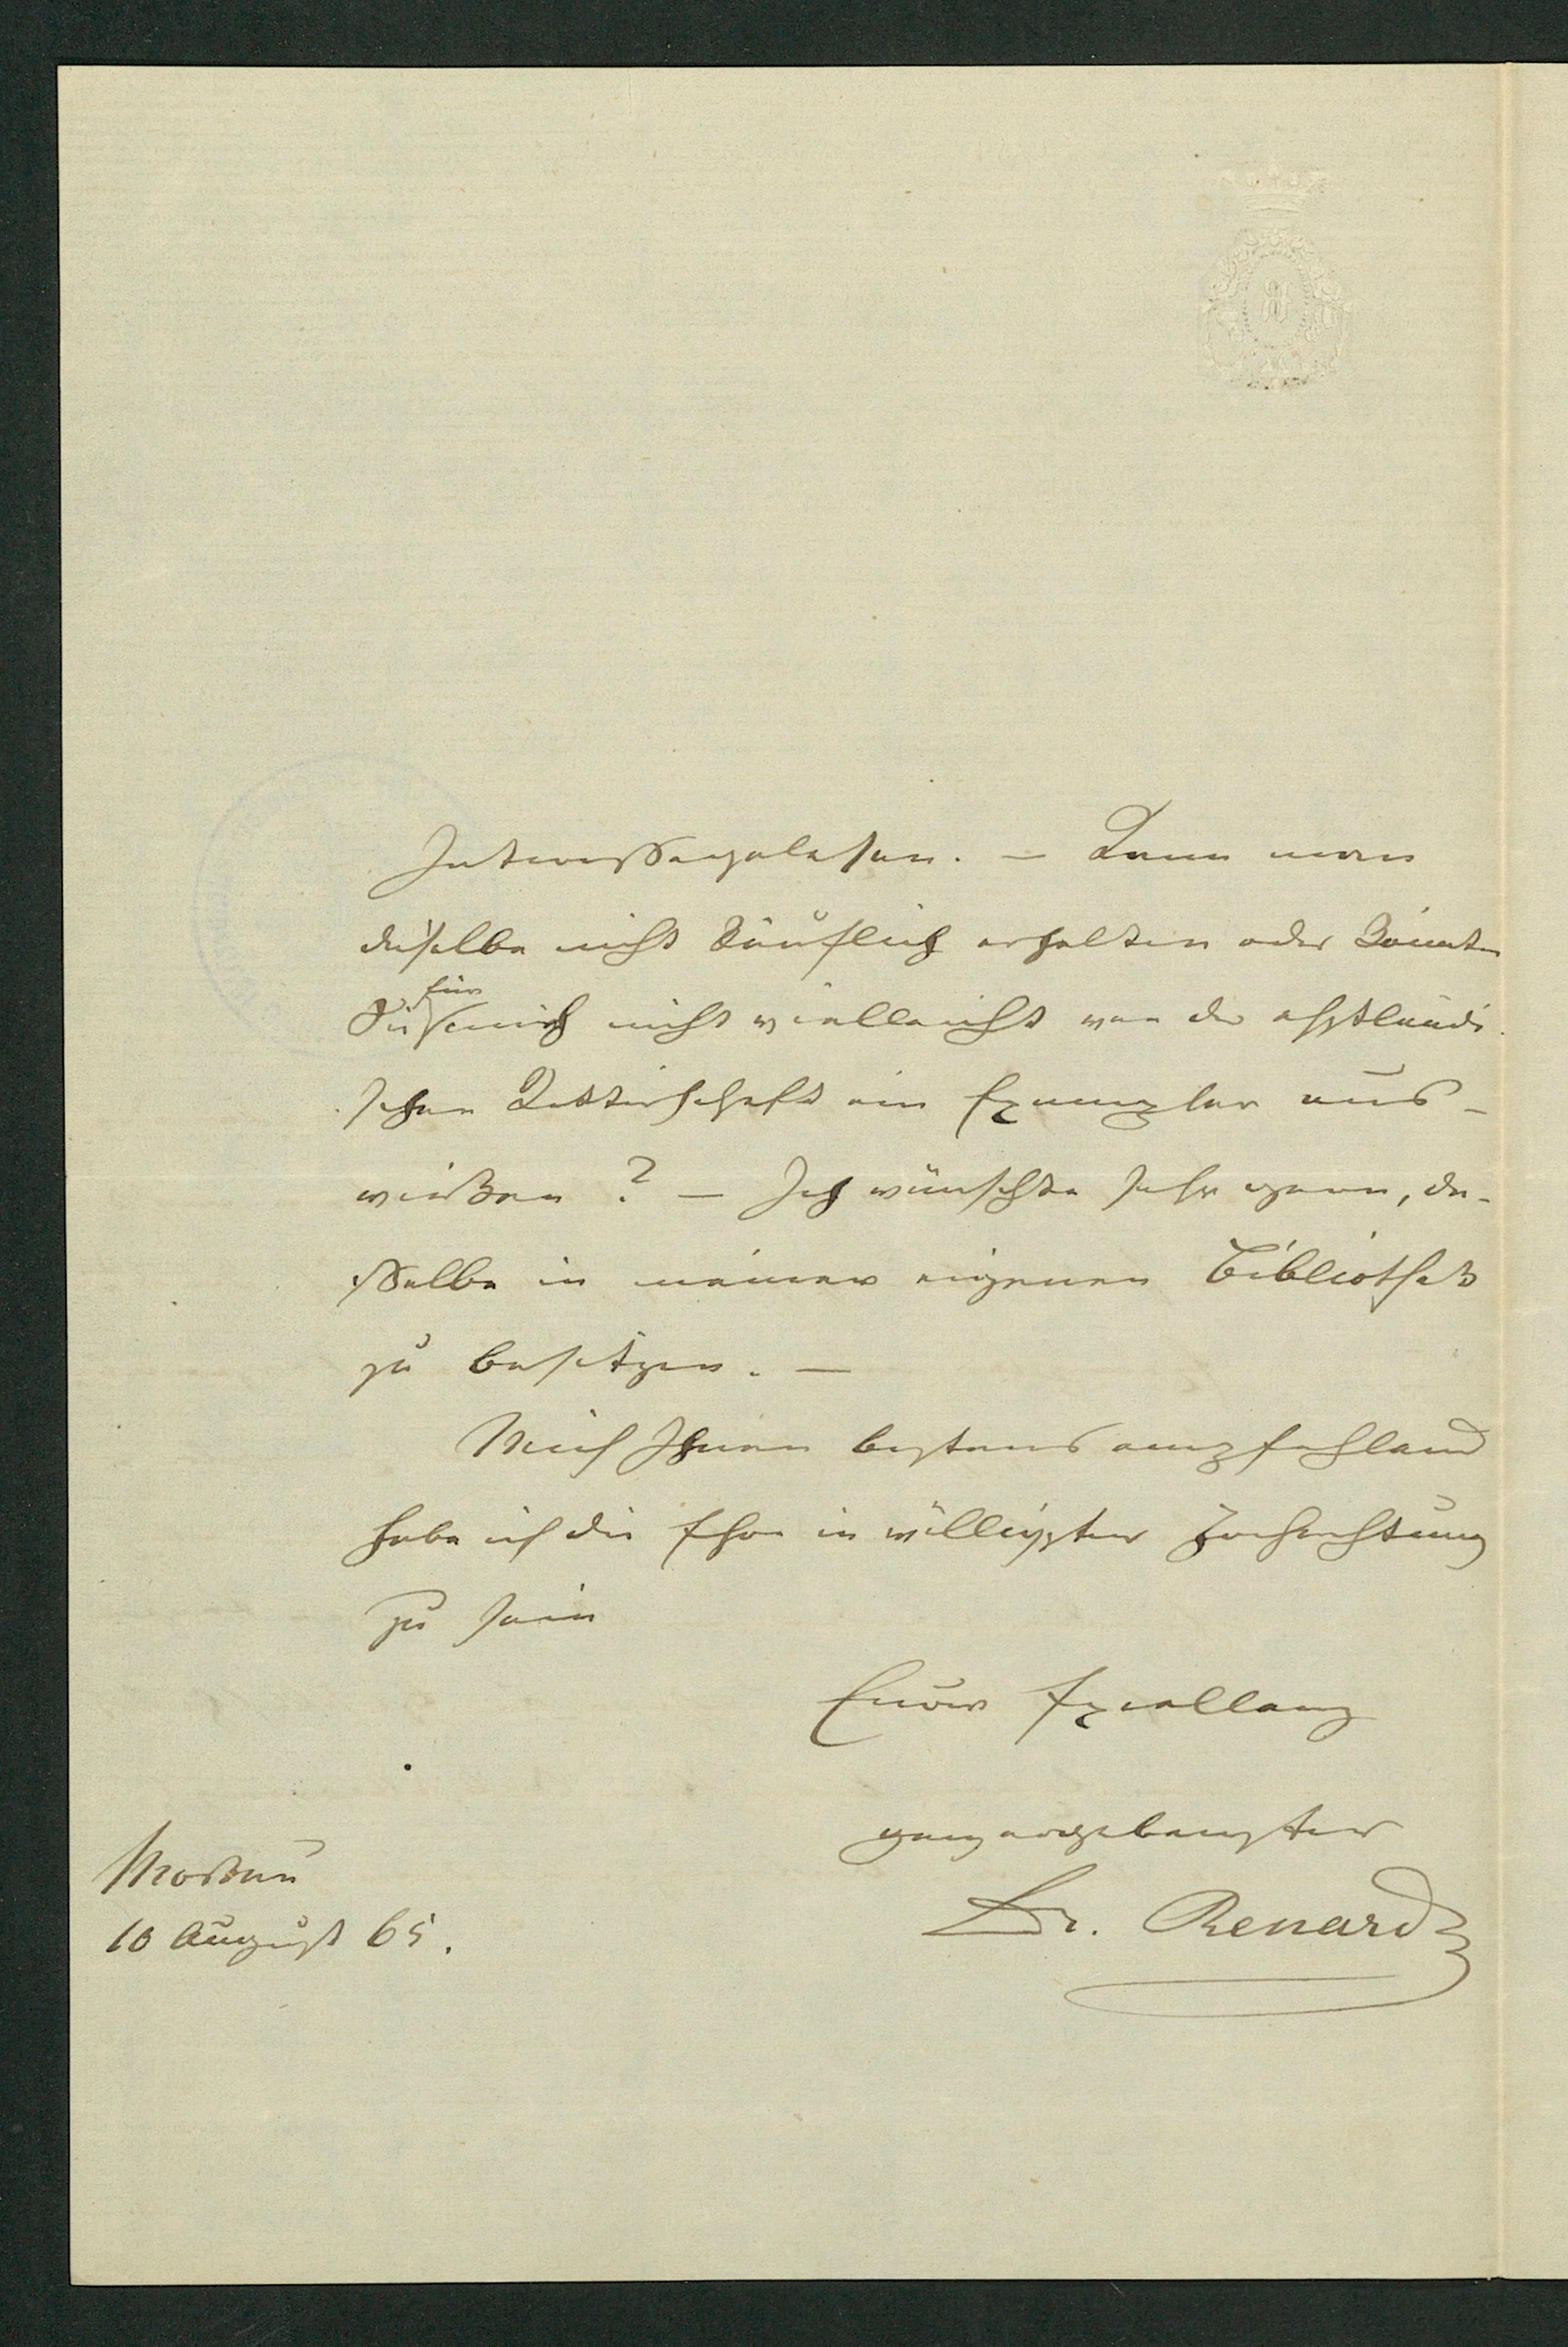 Interesse gelesen. — Kann man
dieselbe nicht käuflich erhalten oder könnten
Sie für mich nicht vielleicht von der ehstländi-
schen Ritterschaft ein Exemplar aus-
wirken? — Ich wünschte sehr gern, die-
selbe in meiner eigenen Bibliothek
zu besitzen. —
Mich Ihnen bestens empfehlend
habe ich die Ehre in völligster Hochachtung
zu sein
Euer Excellenz
ganz ergebenster
Dr. Renard
Moskau
10 August 65.